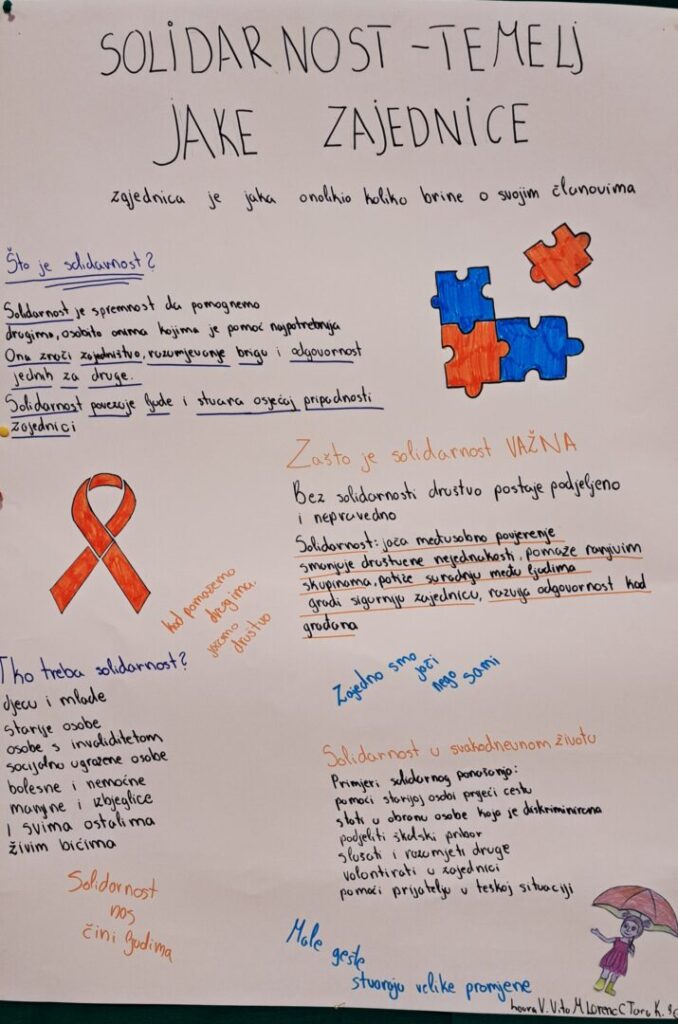 SOLIDARNOST - TEMELJ
JAKE ZAJEDNICE
zajednica je jaka onolikio koliko brine o svojim članovima
Što je solidarnost?
Solidarnost je spremnost da pomognemo
drugima, osobito onima kojima je pomoć najpotrebnija
Ona znači zajedništvo, razumjevanje brigu i odgovornost
jednih za druge.
Solidarnost povezuje ljude i stvara osjećaj pripadnosti
zajednici
Zašto je solidarnost VAŽNA
Bez solidarnosti društvo postaje podjeljeno
i nepravedno
Solidarnost: jača međusobno povjerenje
smanjuje društvene nejednakosti, pomaže ranjivim
skupinama, potiče suradnju među ljudima
gradi sigurniju zajednicu, razvija odgovornost kod
građana
kad pomažemo
drugima.
jačamo
društvo
Zajedno smo
jači
nego sami
Tko treba solidarnost?
djecu i mlade
starije osobe
osobe s invaliditetom
socijalno ugrožene osobe
bolesne i nemoćne
manjine i izbjeglice
I svima ostalima
živim bićima
Solidarnost
nas
čini ljudima
Solidarnost u svakodnevnom životu
Primjeri solidarnog ponašanja:
pomoći starijoj osobi prijeći cestu
stati u obranu osobe koja je diskriminirana
podjeliti školski pribor
slušati i razumjeti druge
volontirati u zajednici
pomoći prijatelju u teskoj situaciji
Male geste
stvaraju velike promjene
V. Vito M. Lorenc Č Tara K.